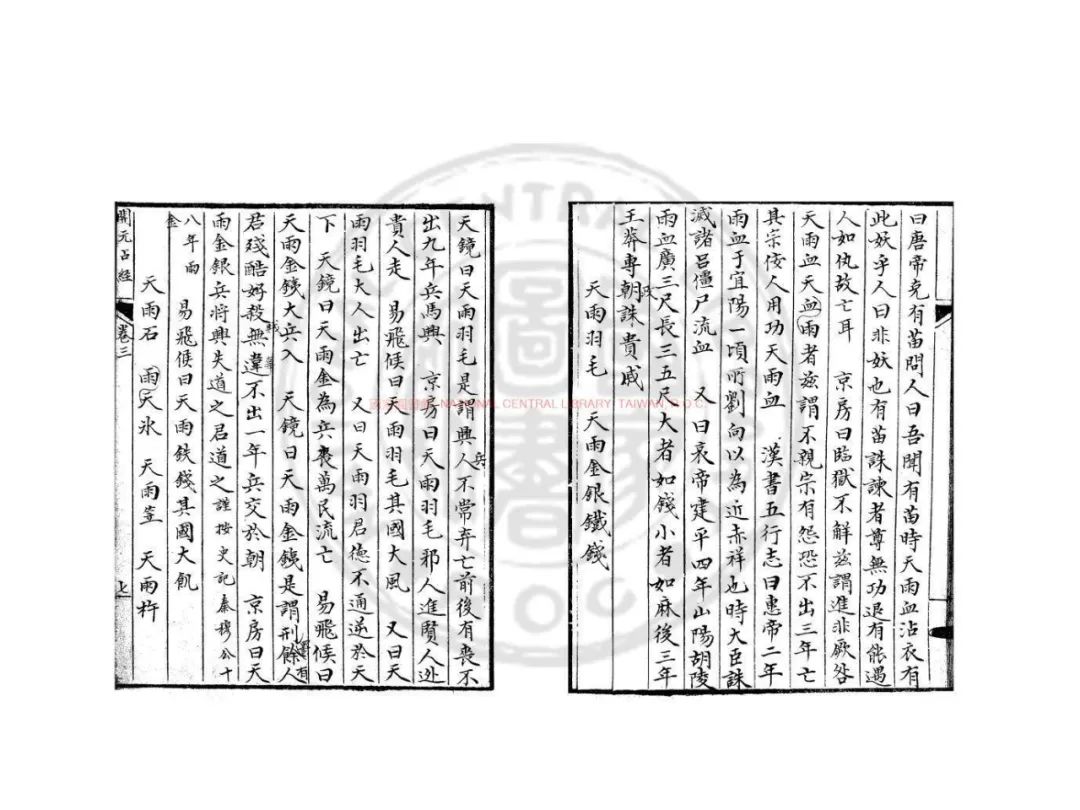 曰唐帝克有苗問人曰吾聞有苗時天雨血沾衣有
此妖乎人曰非妖也有苗誅諫者尊無功退有能遇
人如仇故亡耳 京房曰臨獄不解茲謂進非厥咎
天雨血天血雨者茲謂不親宗有怨恐不出三年亡
其宗佞人用功天雨血 漢書五行志曰惠帝二年
雨血于宜陽一頃所劉向以為近赤祥也時大臣誅
滅諸呂僵尸流血 又曰哀帝建平四年山陽胡陵
雨血廣三尺長三五尺大者如錢小者如麻後三年
王莽專朝政誅貴戚
天雨羽毛 天雨金銀鐵錢
天鏡曰天雨羽毛是謂興人不常弃亡前後有喪不
兵
出九年兵馬興 京房曰天雨羽毛邪人進賢人逃
貴人走 易飛候曰天雨羽毛其國大風 又曰天
雨羽毛大人出亡 又曰天雨羽君德不通逆於天
下 天鏡曰天雨金為兵喪萬民流亡 易飛候曰
天雨金錢大兵入 天鏡曰天雨金錢是謂刑餘人
有
君殘酷好殺無違不出一年兵交於朝 京房曰天
雨金銀兵將興失道之君道之謹按史記秦穆公十
八年雨
金
易飛候曰天雨鉄錢其國大飢
天雨石 雨天冰 天雨荳 天雨杵
開元占經 卷三 七
國家圖書館 NATIONAL CENTRAL LIBRARY, TAIWAN, R.O.C.